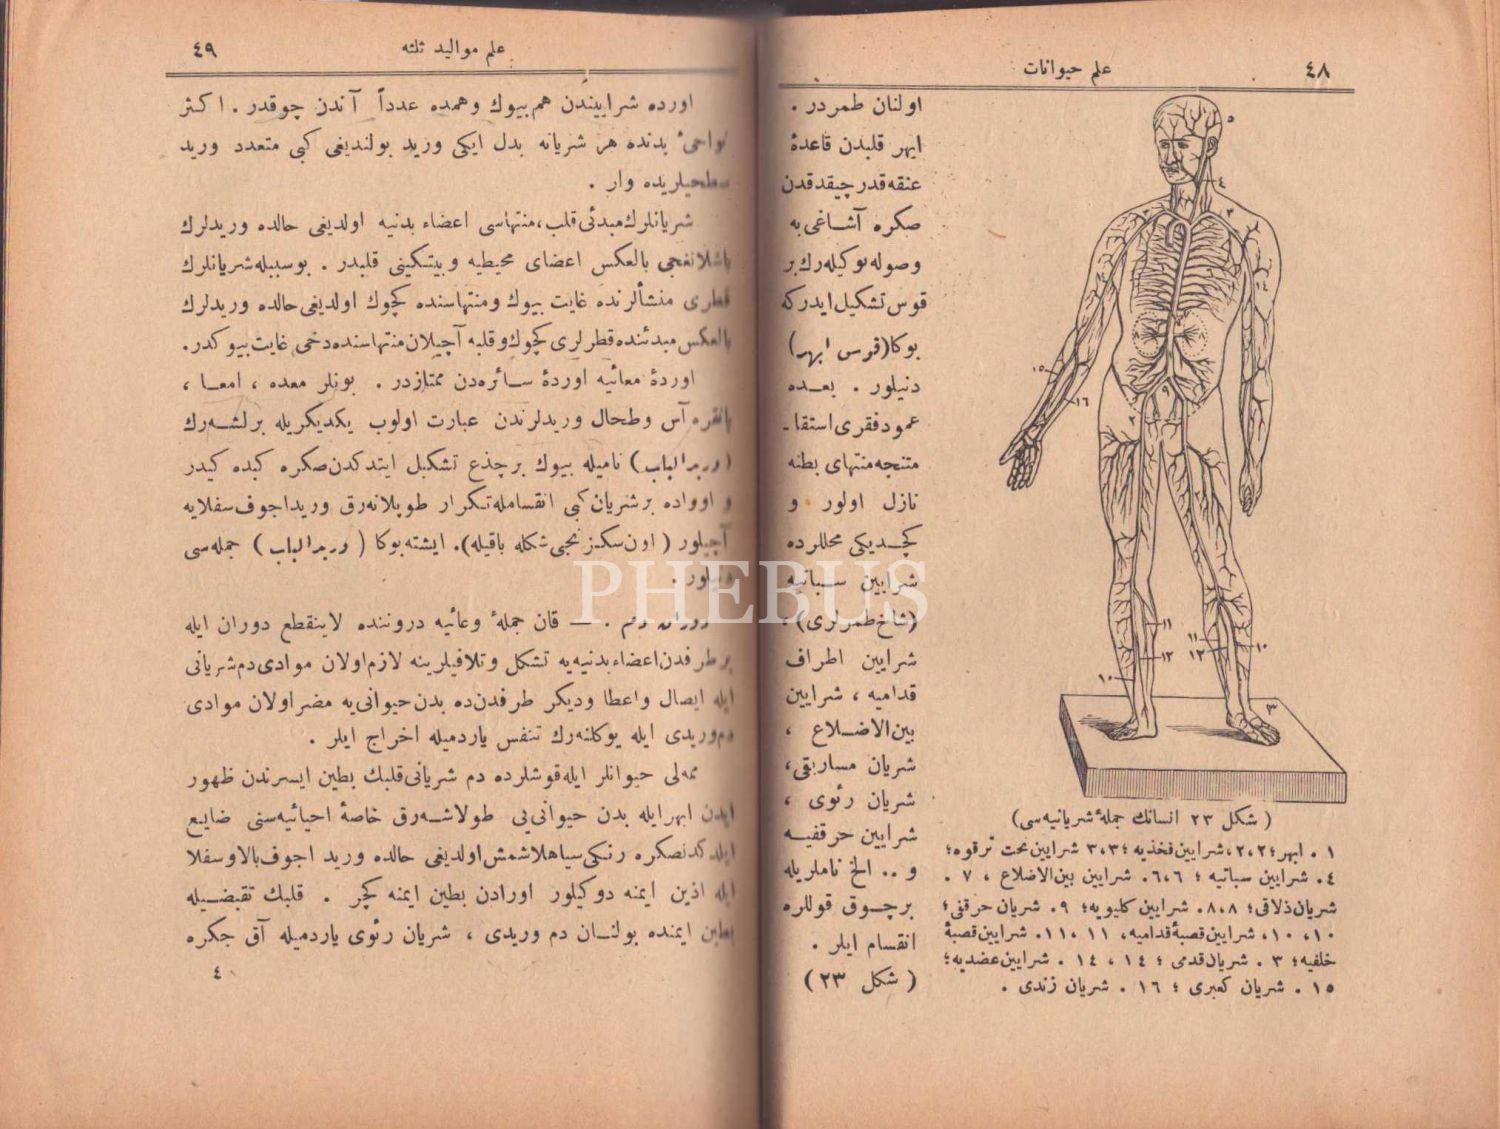 ٤٨
علم حيوانات
اولنان طمردر .
ابهر قلبدن قاعدۀ
عنقه قدر چيقدقدن
صكره آشاغى يه
وصوله بوكيله رك بر
قوس تشكيل ايدركه
بوكا (قوس ابهر)
دنيلور . بعـده
عمود فقرى استقا ـ
متنجه منتهاى بطنه
نازل اولور و
كچـديكى محللرده
شرايين سـباتيه
(شاخ طمرلرى) .
شرايين اطراف
قداميه ، شرايين
بين الاضـلاع ،
شريان مساريقى،
شريان رئوى ،
شرايين حرقفيـه
و .. الخ ناملريله
برچـوق قوللره
انقسام ايلر .
( شكل ٢٣ )
٥
٤
٣
٢
١٤
١٥
١٦
٩
٢
١١
١٢
١٠
١١
١٣
١٠
٣
( شكل ٢٣ انسانك جملۀ شريانيه سى)
١ . ابهر ؛ ٢،٢، شرايين فخذيه ؛ ٣،٣ شرايين تحت ترقوه ؛
٤. شرايين سباتيه ؛ ٦،٦. شرايين بين الاضلاع ، ٧ .
شريان ذلاقى؛ ٨،٨. شرايين كليويه؛ ٩. شريان حرقفى؛
١٠، ١٠، شرايين قصبۀ قداميه، ١١ ،١١. شرايين قصبۀ
خلفيه؛ ٣ . شريان قدمى ؛ ١٤ ، ١٤ . شرايين عضديه؛
١٥ . شريان كعبرى ؛ ١٦ . شريان زندى .
علم مواليد ثلثه
٤٩
اورده شرايينندن هم بيوك وهمده عدداً آندن چوقدر . اكثر
نواحئ بدنده هر شريانه بدل ايكى وريد بولنديغى كبى متعدد وريد
سطحيلريده وار .
شريانلرك مبدئى قلب، منتهاسى اعضاء بدنيه اولديغى حالده وريدلرك
باشلانغجى بالعكس اعضاى محيطيه وبيتشكينى قلبدر . بوسببله شريانلرك
قطرى منشألرنده غايت بيوك ومنتهاسنده كچوك اولديغى حالده وريدلرك
بالعكس مبدئنده قطرلرى كچوك وقلبه آچيلان منتهاسنده دخى غايت بيوكدر.
اوردۀ معائيه اوردۀ سـائره دن ممتازدر . بونلر معده ، امعـا ،
بانقره آس وطحال وريدلرندن عبارت اولوب يكديكريله برلشـه رك
(وريد الباب) ناميله بيوك برجذع تشكيل ايتدكدن صكره كبده كيدر
و اوراده بر شريان كبى انقسامله تكرار طوپلانه رق وريد اجوف سفلايه
آچيلور ( اون سكزنجى شكله باقيله). ايشته بوكا ( وريد الباب ) جمله سى
دنيلور .
دوران دم . — قان جملۀ وعائيه دروننده لاينقطع دوران ايله
بر طرفدن اعضاء بدنيه يه تشكل وتلافيلرينه لازم اولان موادى دم شريانى
ايله ايصال واعطا وديكر طرفدن ده بدن حيوانى يه مضر اولان موادى
دم وريدى ايله يوكلنه رك تنفس ياردميله اخراج ايلر .
ممه لى حيوانلر ايله قوشلرده دم شريانى قلبك بطين ايسرندن ظهور
ايدن ابهر ايله بدن حيوانى يى طولاشـه رق خاصۀ احيائيه سنى ضايع
ايلدكدنصكره رنكى سياهلاشمش اولديغى حالده وريد اجوف بالا وسفلا
ايله اذين ايمنه دوكيلور اورادن بطين ايمنه كچر . قلبك تقبضـيله
بطين ايمنده بولنـان دم وريدى ، شريان رئوى ياردميله آق جكره
٤
PHEBUS